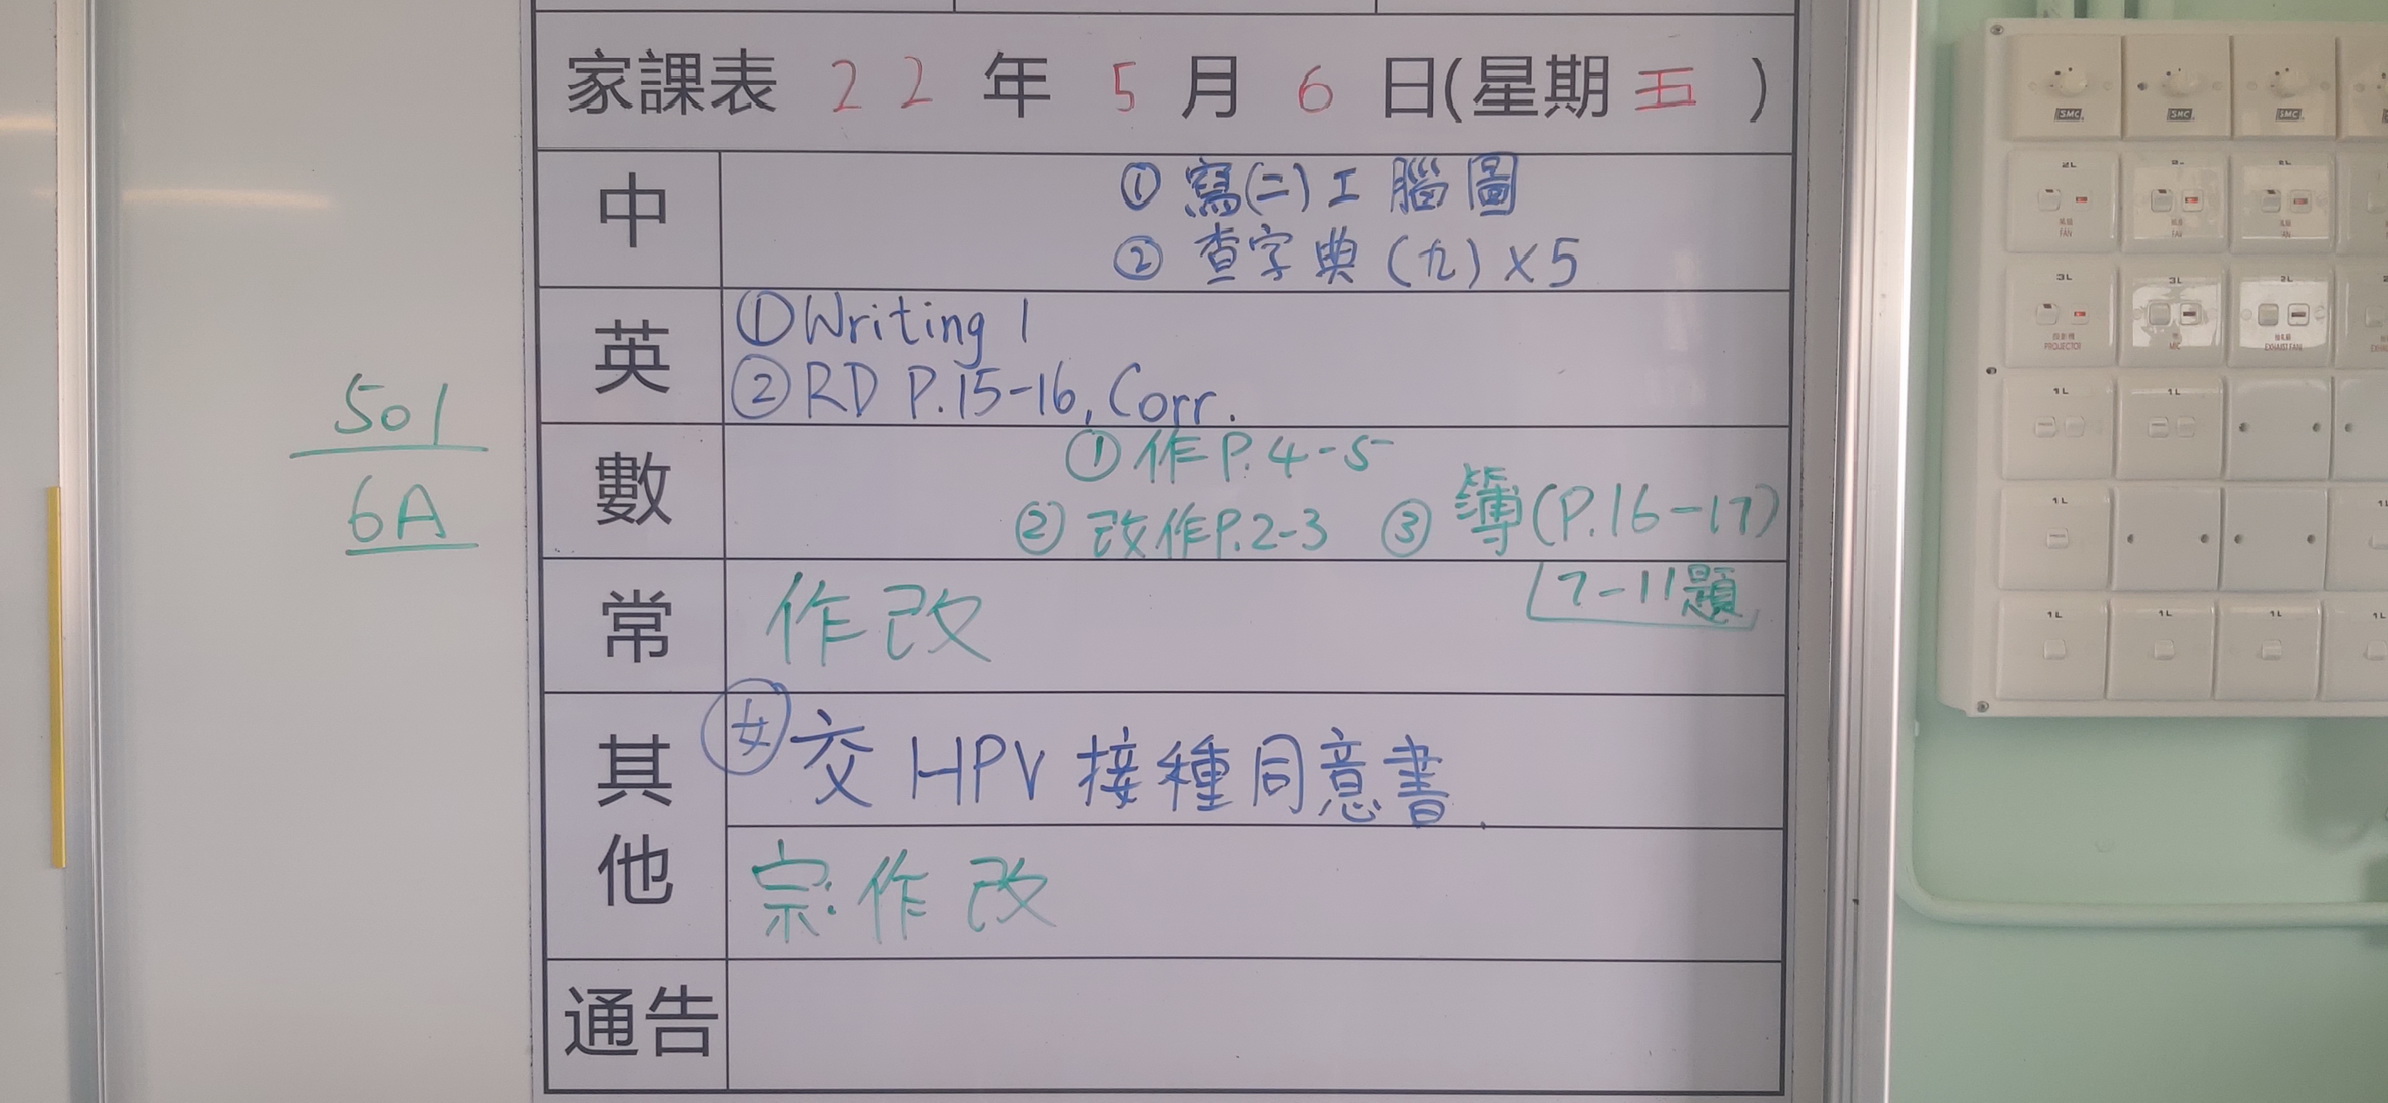 家課表 22 年 5 月 6 日(星期五)
中
① 寫(二)工 腦圖
② 查字典(九)×5
英
① Writing 1
② RD P.15-16, Corr.
數
① 作P.4-5
② 改作P.2-3 ③ 簿(P.16-17)
7-11題
常
作改
其他
女 交 HPV 接種同意書.
宗:作改
通告
501
6A
SMC SMC SMC
2L 2L
風扇
FAN FAN
3L 3L 2L
PROJECTOR MIC EXHAUST FAN
1L 1L
1L 1L
1L 1L 1L 1L